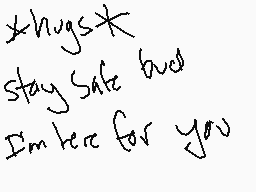 *hugs*
stay safe bud
I'm here for you